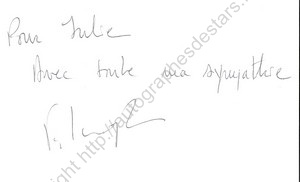 Pour Julie
Avec toute ma sympathie
http://autographesdestars.